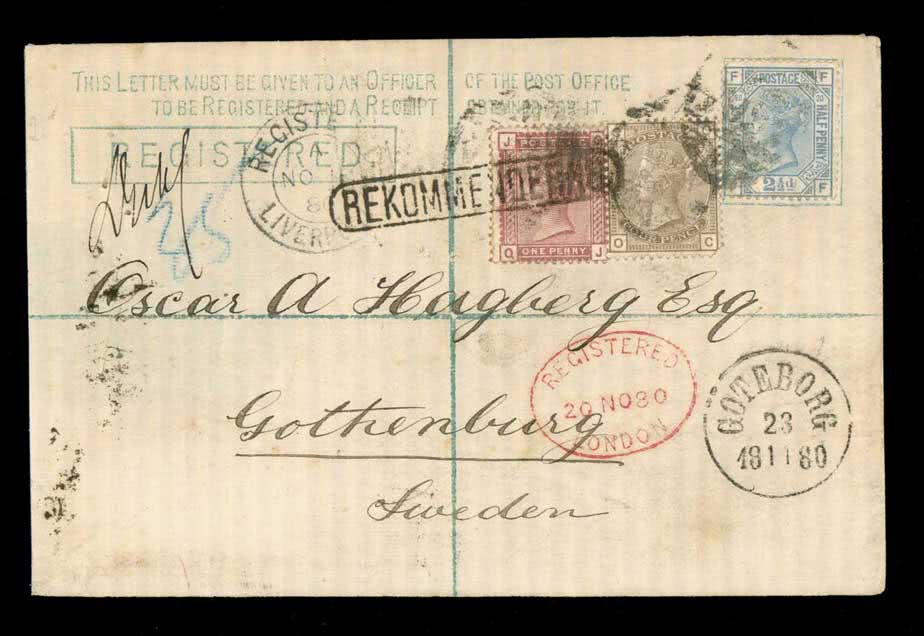 THIS LETTER MUST BE GIVEN TO AN OFFICER OF THE POST OFFICE
TO BE REGISTERED AND A RECEIPT
REGISTERED
REGISTE
A
NO
8
LIVERP
REKOMMENDERAS
J POSTAGE J
ONE PENNY
Q J
POSTAGE
FOUR PENCE
O C
F POSTAGE F
HALFPENNY
F 2½d F
25
Oscar A Hagberg Esq
Gothenburg
Sweden
REGISTERED
20 NO 80
LONDON
GÖTEBORG
23
18 11 80